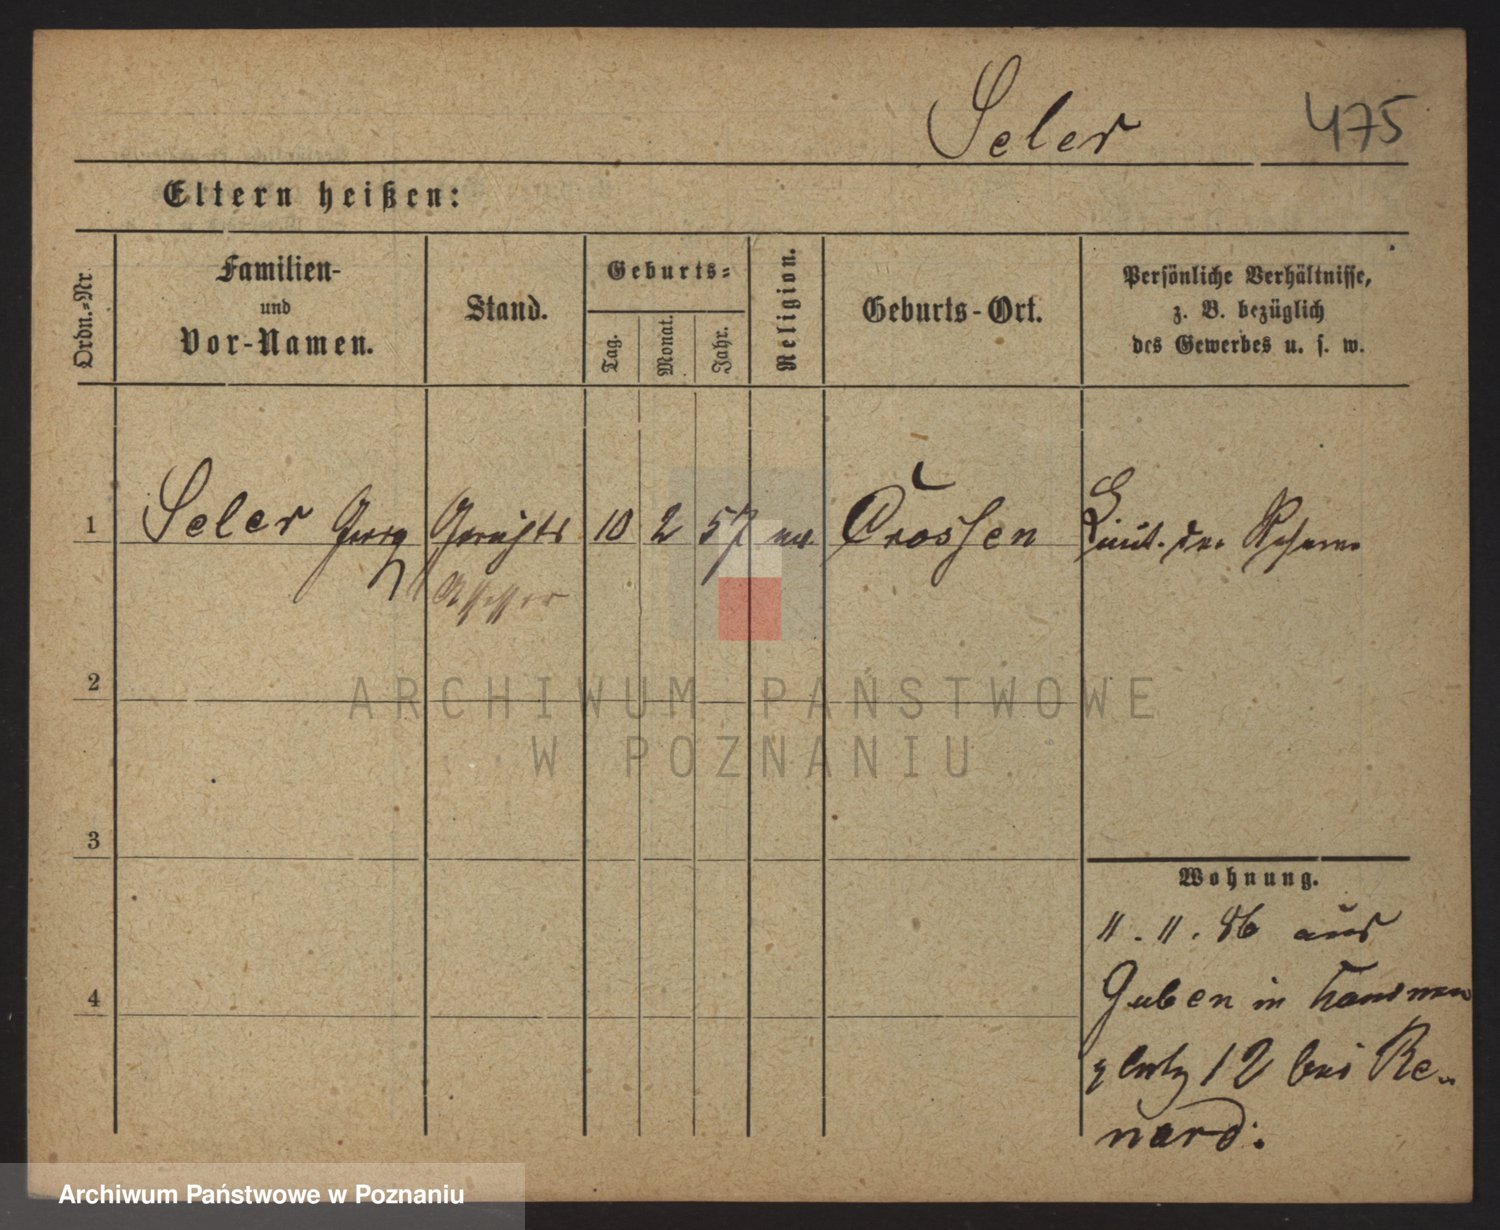 Seler 475
Eltern heißen:
Ordn.-Nr.
Familien-
und
Vor-Namen.
Stand.
Geburts-
Tag.
Monat.
Jahr.
Religion.
Geburts-Ort.
Persönliche Verhältnisse,
z. B. bezüglich
des Gewerbes u. s. w.
1 Seler Georg Gerichts 10 2 57 ev. Crossen Lieut. der Reserve
Assessor
2
ARCHIWUM PAŃSTWOWE
W POZNANIU
3
Wohnung.
11. 11. 86 aus
Guben in
4
platz 12 bei Re-
nard.
Archiwum Państwowe w Poznaniu